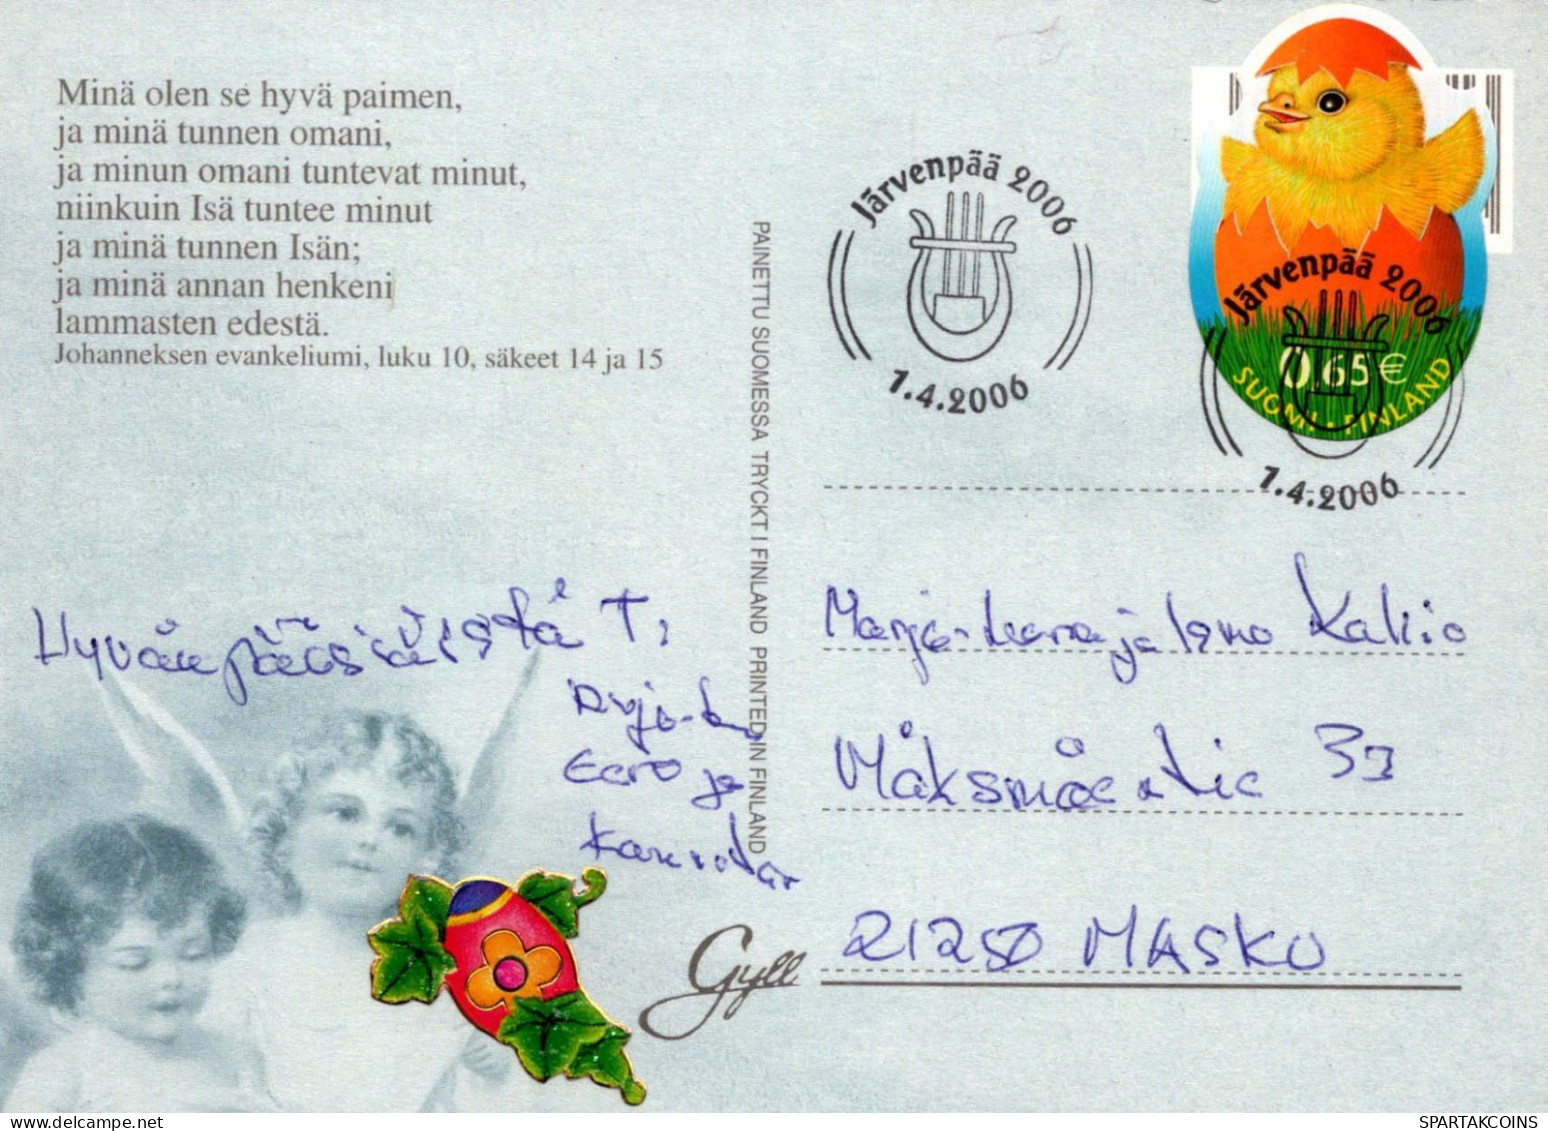 Minä olen se hyvä paimen,
ja minä tunnen omani,
ja minun omani tuntevat minut,
niinkuin Isä tuntee minut
ja minä tunnen Isän;
ja minä annan henkeni
lammasten edestä.
Johanneksen evankeliumi, luku 10, säkeet 14 ja 15
Hyvää pääsiäistä T,
Eero ja
PAINETTU SUOMESSA TRYCKT I FINLAND PRINTED IN FINLAND
Gyll
Järvenpää 2006
1.4.2006
Järvenpää 2006
0,65 €
SUOMI • FINLAND
1.4.2006
Marja-Leena ja Ismo Kallio
21250 MASKU
SPARTAKCOINS